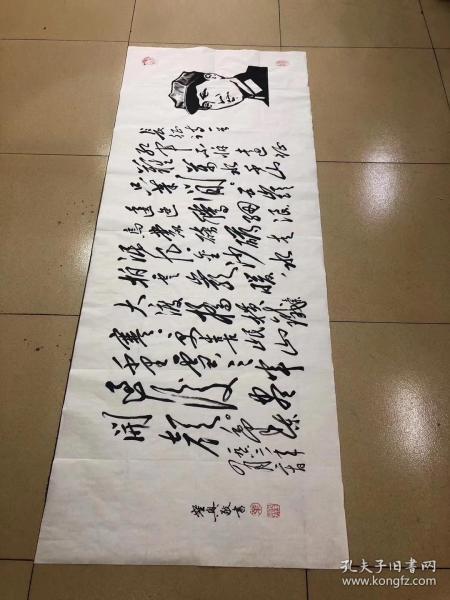 长征诗一首
红军不怕远征难
万水千山只等闲
五岭逶迤腾细浪
乌蒙磅礴走泥丸
金沙水拍云崖暖
大渡桥横铁索寒
更喜岷山千里雪
三军过后尽开颜
毛泽东
一九六二年四月
敬书
孔夫子旧书网
www.kongfz.com